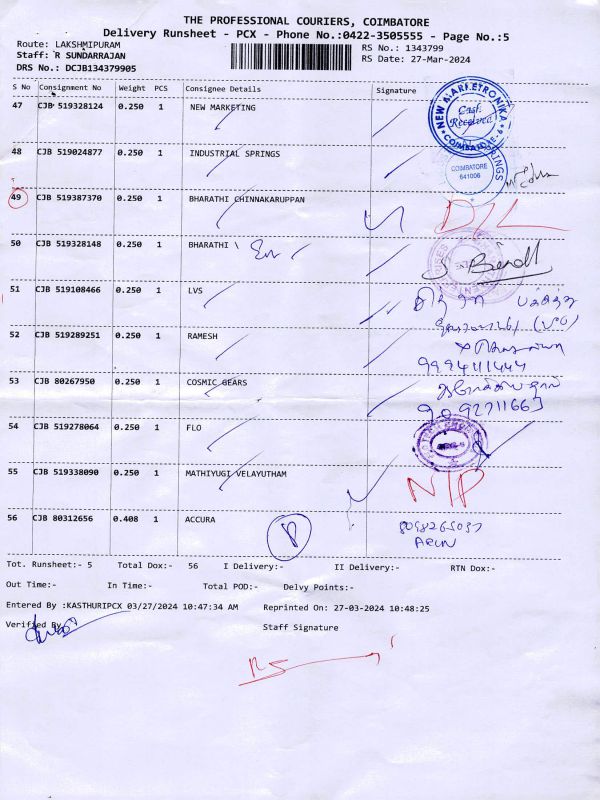 THE PROFESSIONAL COURIERS, COIMBATORE
Delivery Runsheet - PCX - Phone No.:0422-3505555 - Page No.:5
Route: LAKSHMIPURAM
Staff: R SUNDARRAJAN
DRS No.: DCJB134379905
RS No.: 1343799
RS Date: 27-Mar-2024
S No Consignment No Weight PCS Consignee Details Signature
47 CJB 519328124 0.250 1 NEW MARKETING
NEW MARKETRONIKA
Cash Received
COIMBATORE-6
48 CJB 519024877 0.250 1 INDUSTRIAL SPRINGS
SPRINGS
COIMBATORE
641006
49 CJB 519387370 0.250 1 BHARATHI CHINNAKARUPPAN D/L
50 CJB 519328148 0.250 1 BHARATHI
51 CJB 519108466 0.250 1 LVS
52 CJB 519289251 0.250 1 RAMESH
9994111444
53 CJB 80267950 0.250 1 COSMIC GEARS
54 CJB 519278064 0.250 1 FLO
55 CJB 519338090 0.250 1 MATHIYUGI VELAYUTHAM N/P
56 CJB 80312656 0.408 1 ACCURA P
ARUN
Tot. Runsheet:- 5 Total Dox:- 56 I Delivery:- II Delivery:- RTN Dox:-
Out Time:- In Time:- Total POD:- Delvy Points:-
Entered By :KASTHURIPCX 03/27/2024 10:47:34 AM Reprinted On: 27-03-2024 10:48:25
Verified By
Staff Signature